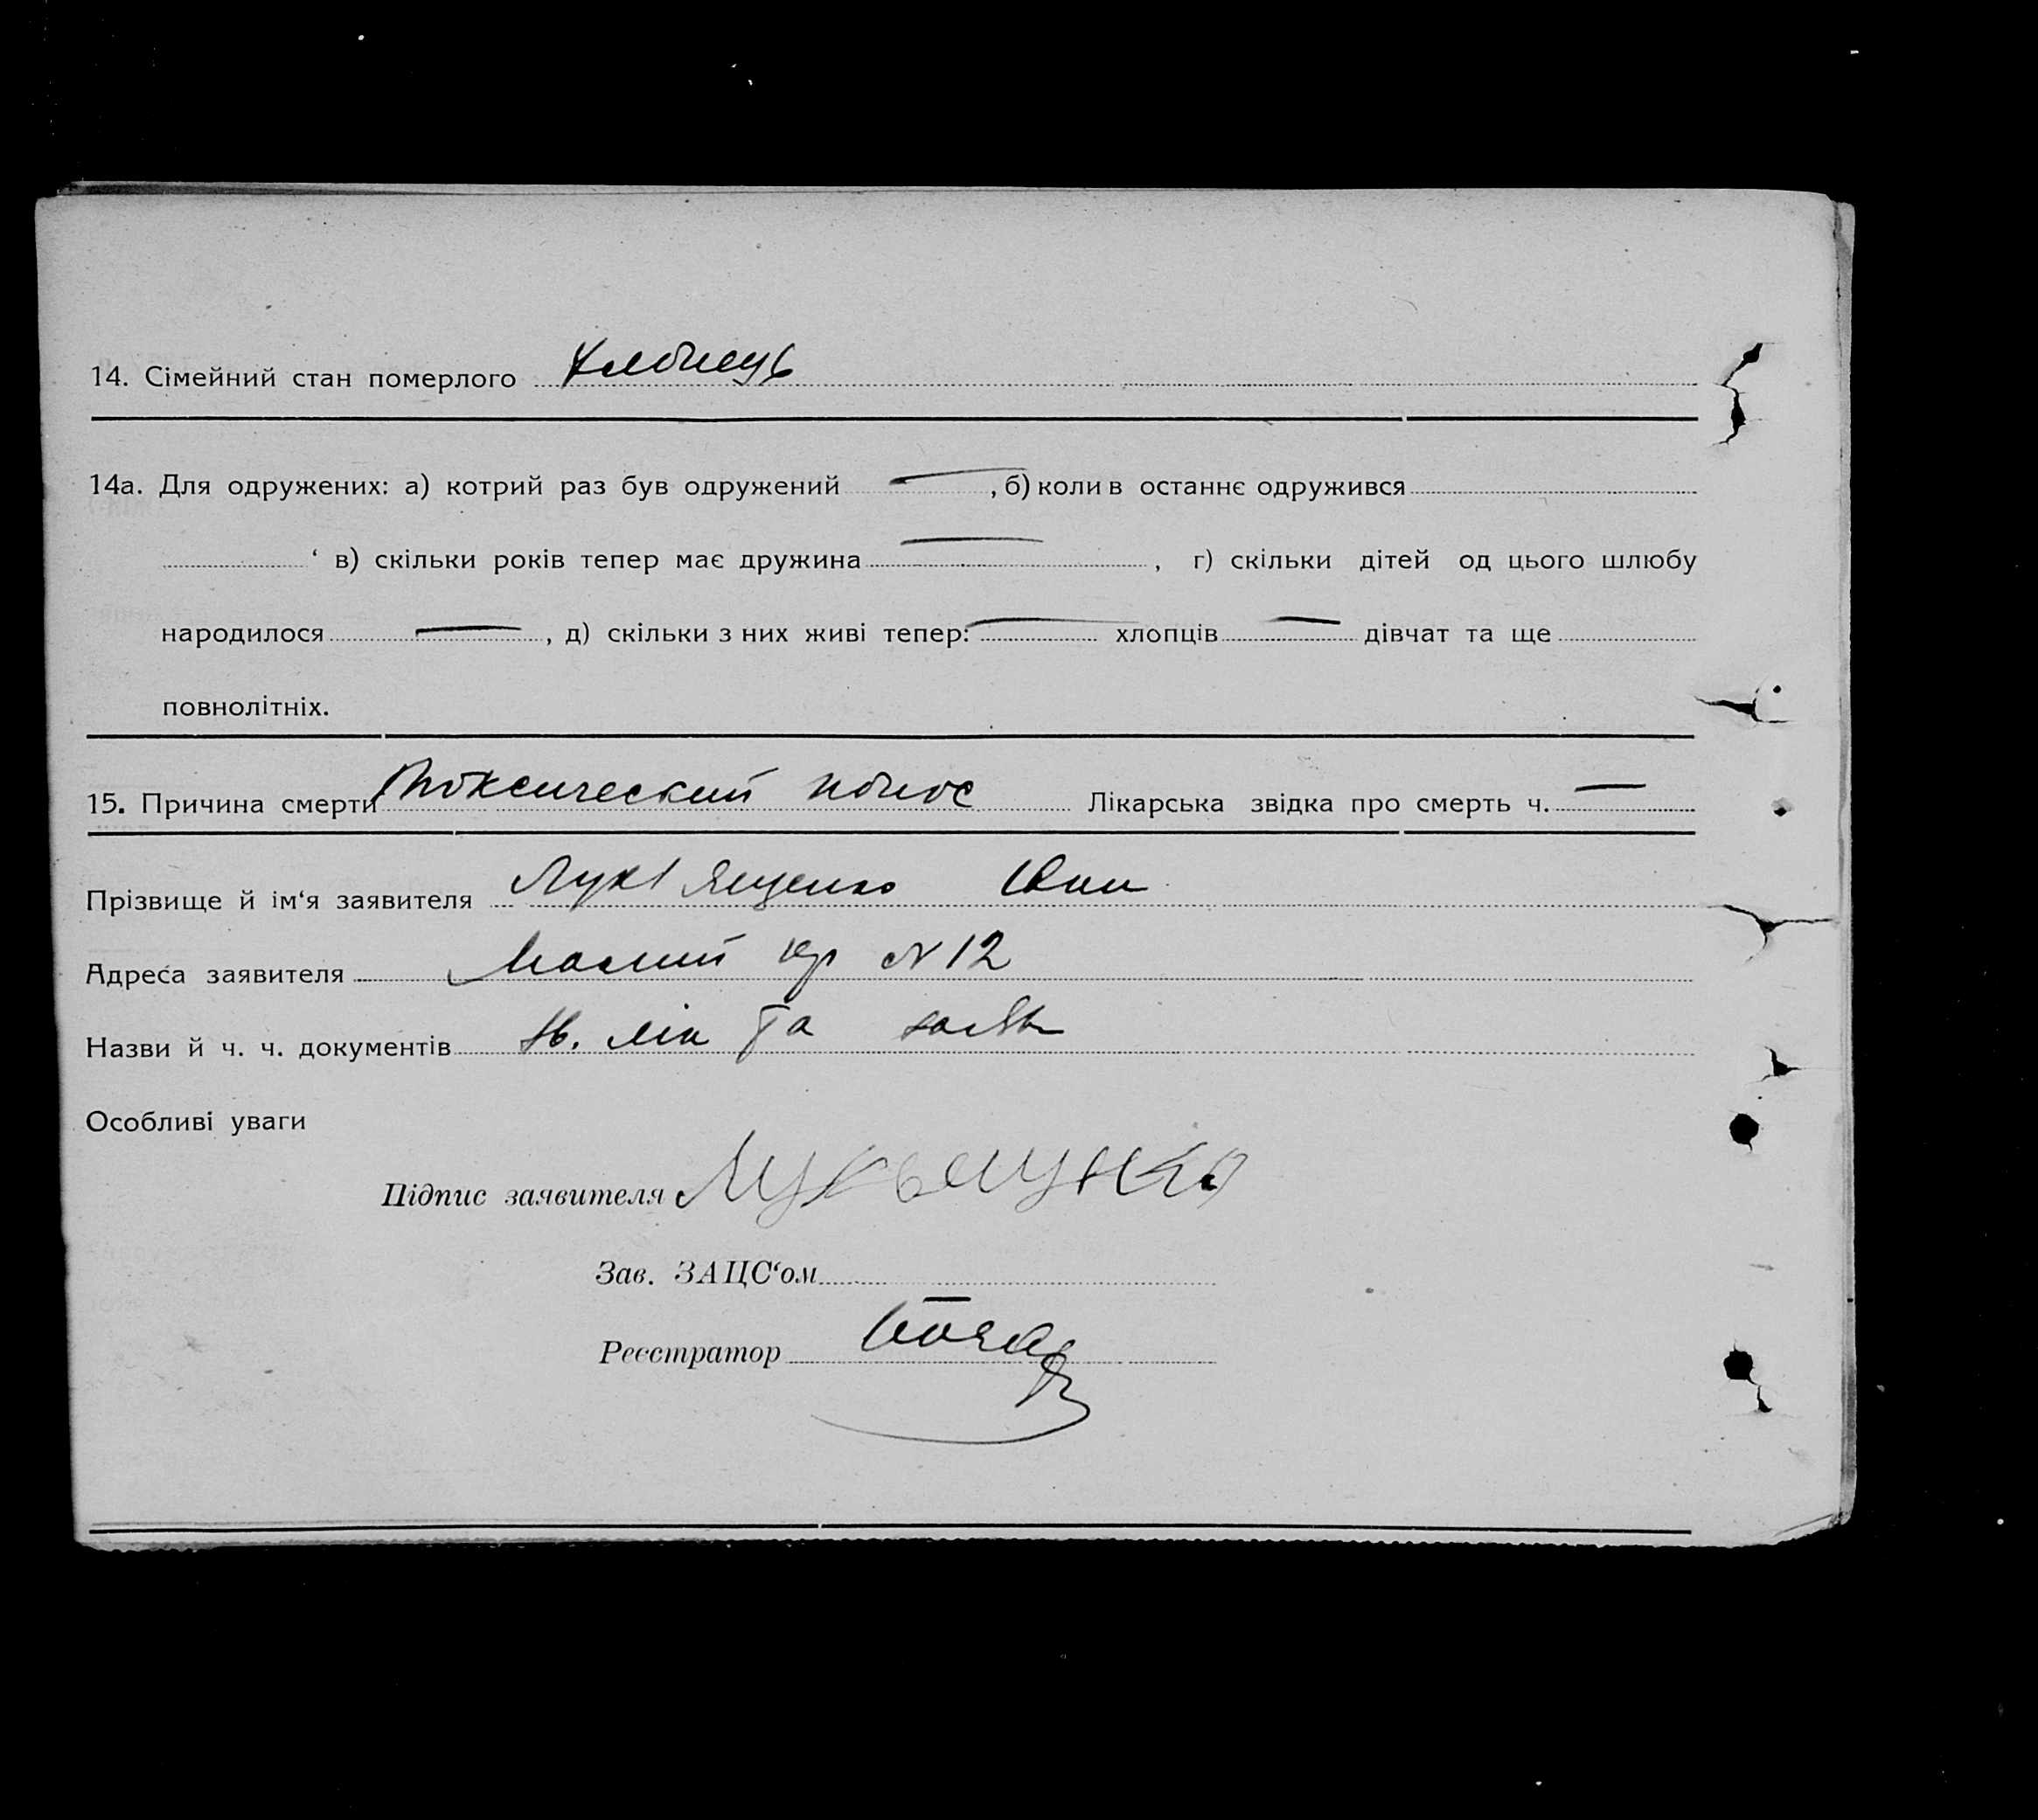 14. Сімейний стан померлого хлопець
14а. Для одружених: а) котрий раз був одружений — , б) коли в останнє одружився
‘ в) скільки років тепер має дружина — , г) скільки дітей од цього шлюбу
народилося — , д) скільки з них живі тепер: — хлопців — дівчат та ще
повнолітніх.
15. Причина смерти Токсический понос Лікарська звідка про смерть ч. —
Прізвище й ім‘я заявителя Лук'ященко
Адреса заявителя №12
Назви й ч. ч. документів та
Особливі уваги
Підпис заявителя
Зав. ЗАЦС‘ом
Реєстратор